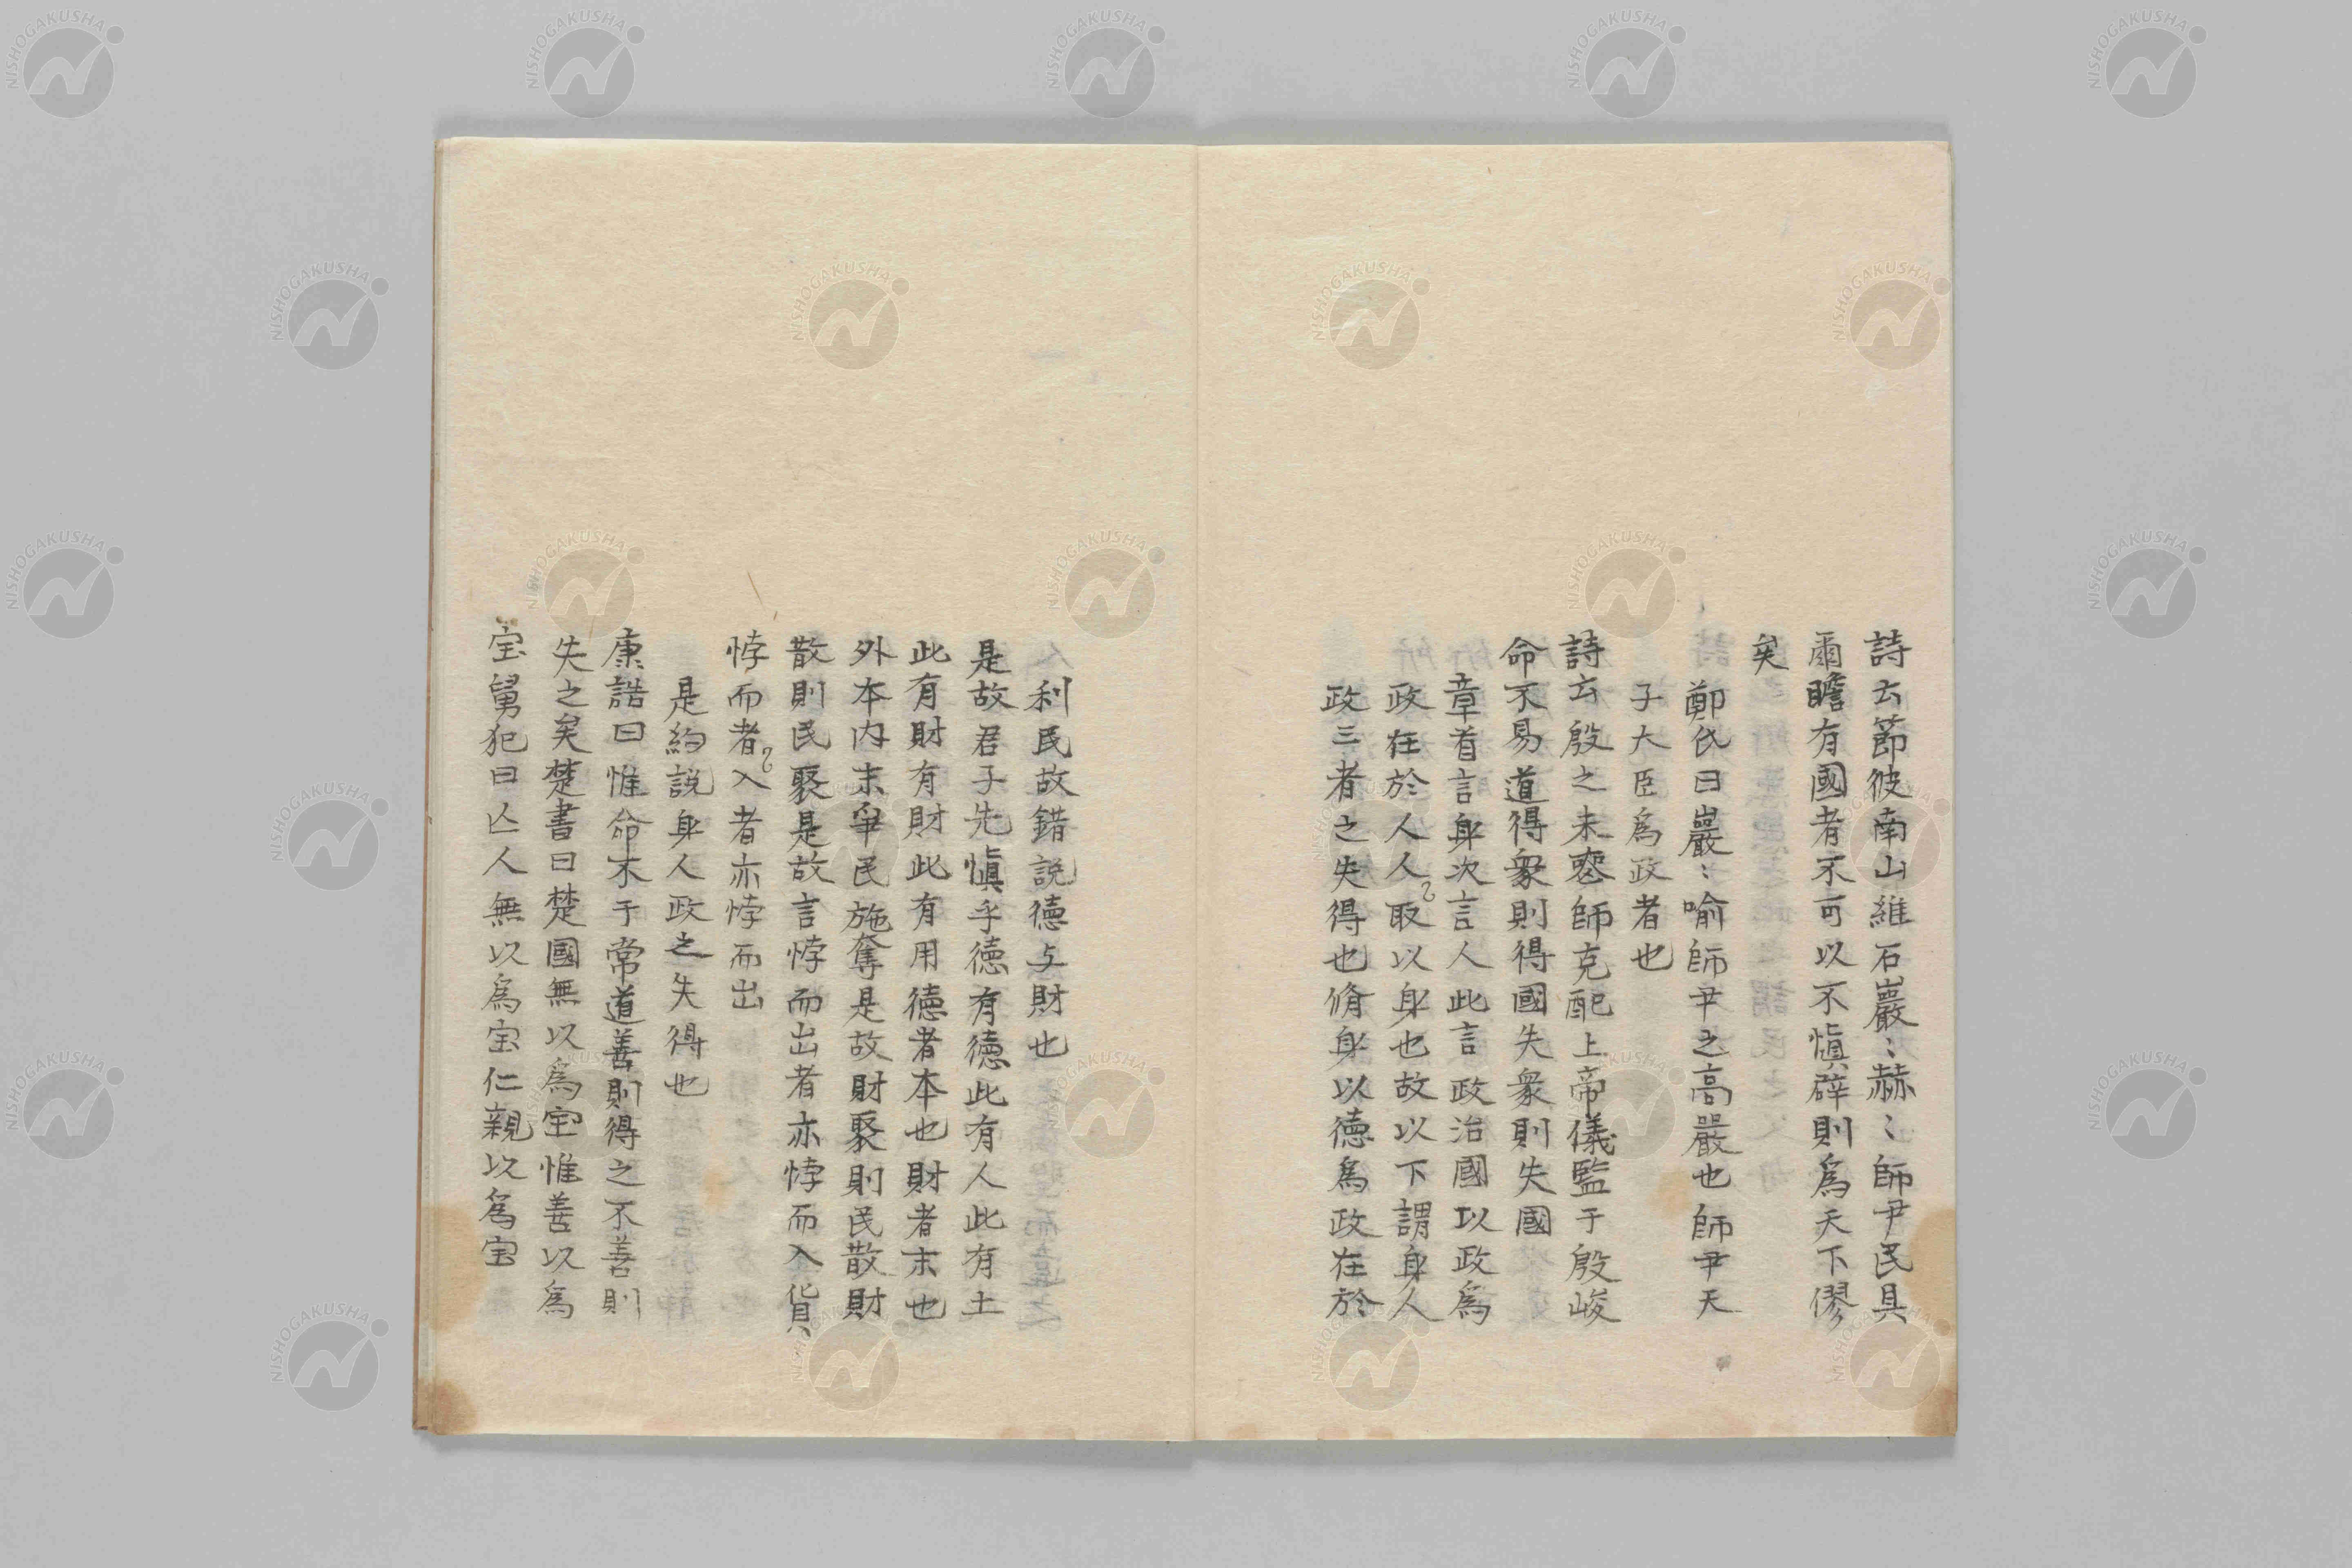 詩云節彼南山維石巖〻赫〻師尹民具
爾瞻有國者不可以不慎辟則為天下僇
矣
鄭氏曰巖〻喻師尹之高嚴也師尹天
子大臣為政者也
詩云殷之未喪師克配上帝儀監于殷峻
命不易道得衆則得國失衆則失國
章首言身次言人此言政治國以政為
政在於人人取以身也故以下謂身人
政三者之失得也脩身以德為政在於
利民故錯説德与財也
是故君子先慎乎德有德此有人此有土
此有財有財此有用德者本也財者末也
外本内末爭民施奪是故財聚則民散財
散則民聚是故言悖而出者亦悖而入貨
悖而者入者亦悖而出
是約説身人政之失得也
康誥曰惟命不于常道善則得之不善則
失之矣楚書曰楚國無以為宝惟善以為
宝舅犯曰亾人無以為宝仁親以為宝
NISHOGAKUSHA